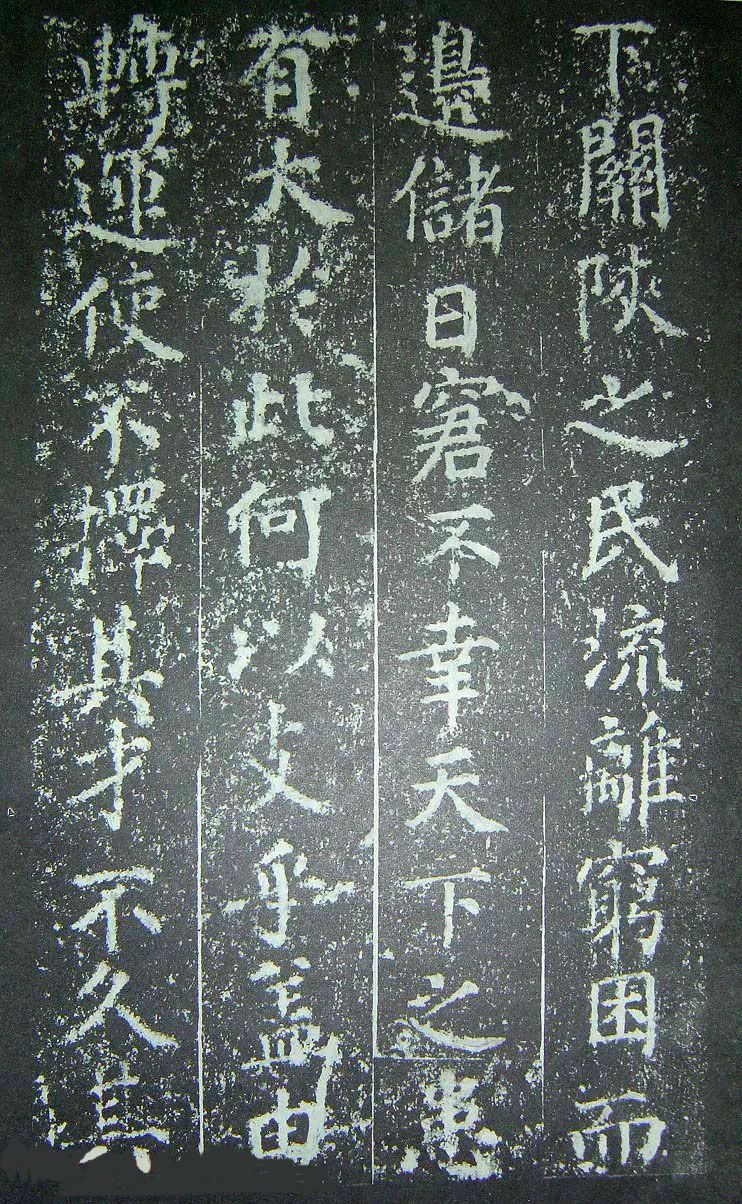 下關陝之民流離窮困而
邊儲日窘不幸天下之患
有大於此何以支乎盖由
轉運使不擇其才不久其